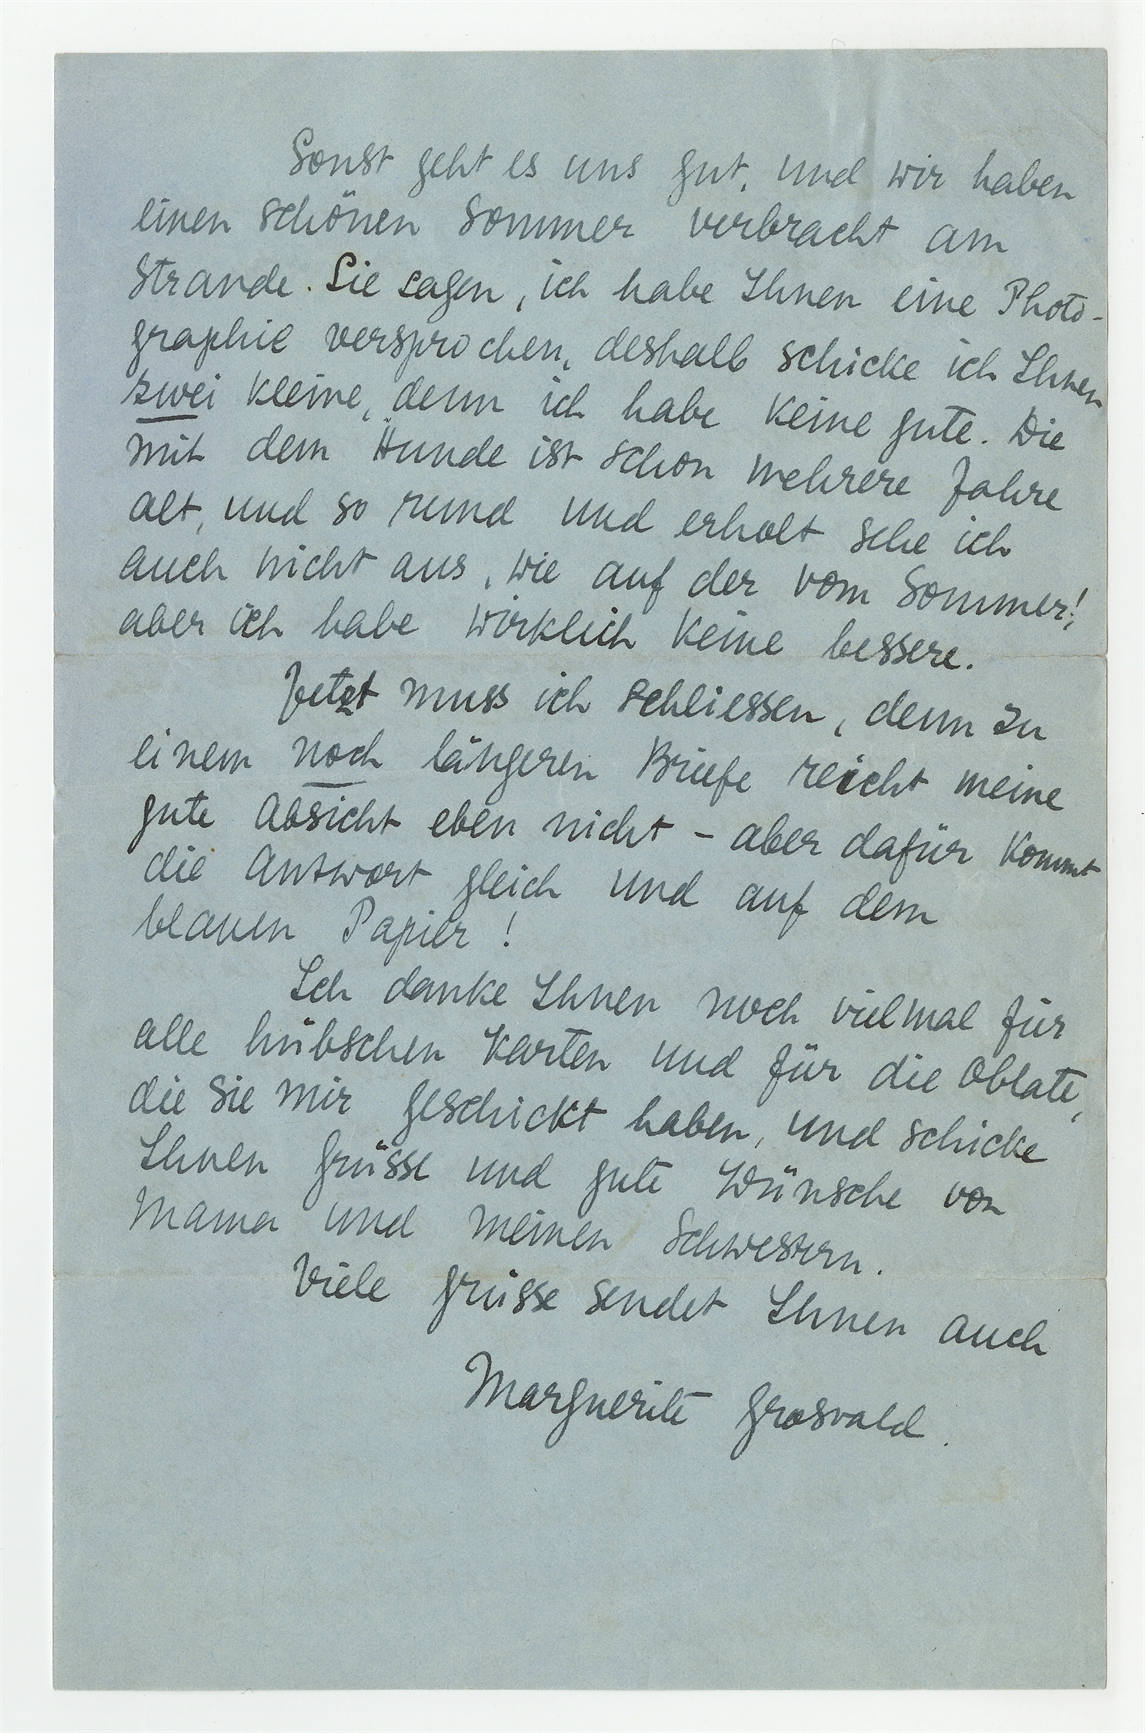 Sonst geht es uns gut, und wir haben
einen schönen Sommer verbracht am
Strande. Sie sagen, ich habe Ihnen eine Photo-
graphie versprochen, deshalb schicke ich Ihnen
zwei kleine, denn ich habe keine gute. Die
mit dem Hunde ist schon mehrere Jahre
alt, und so rund und erholt sehe ich
auch nicht aus, wie auf der vom Sommer!,
aber ich habe wirklich keine bessere.
Jetzt muss ich schliessen, denn zu
einem noch längeren Briefe reicht meine
gute Absicht eben nicht – aber dafür kommt
die Antwort gleich und auf dem
blauen Papier!
Ich danke Ihnen noch vielmal für
alle hübschen Karten und für die Oblate,
die Sie mir geschickt haben, und schicke
Ihnen Grüsse und gute Wünsche von
Mama und meinen Schwestern.
Viele Grüsse sendet Ihnen auch
Marguerite Grosvald.